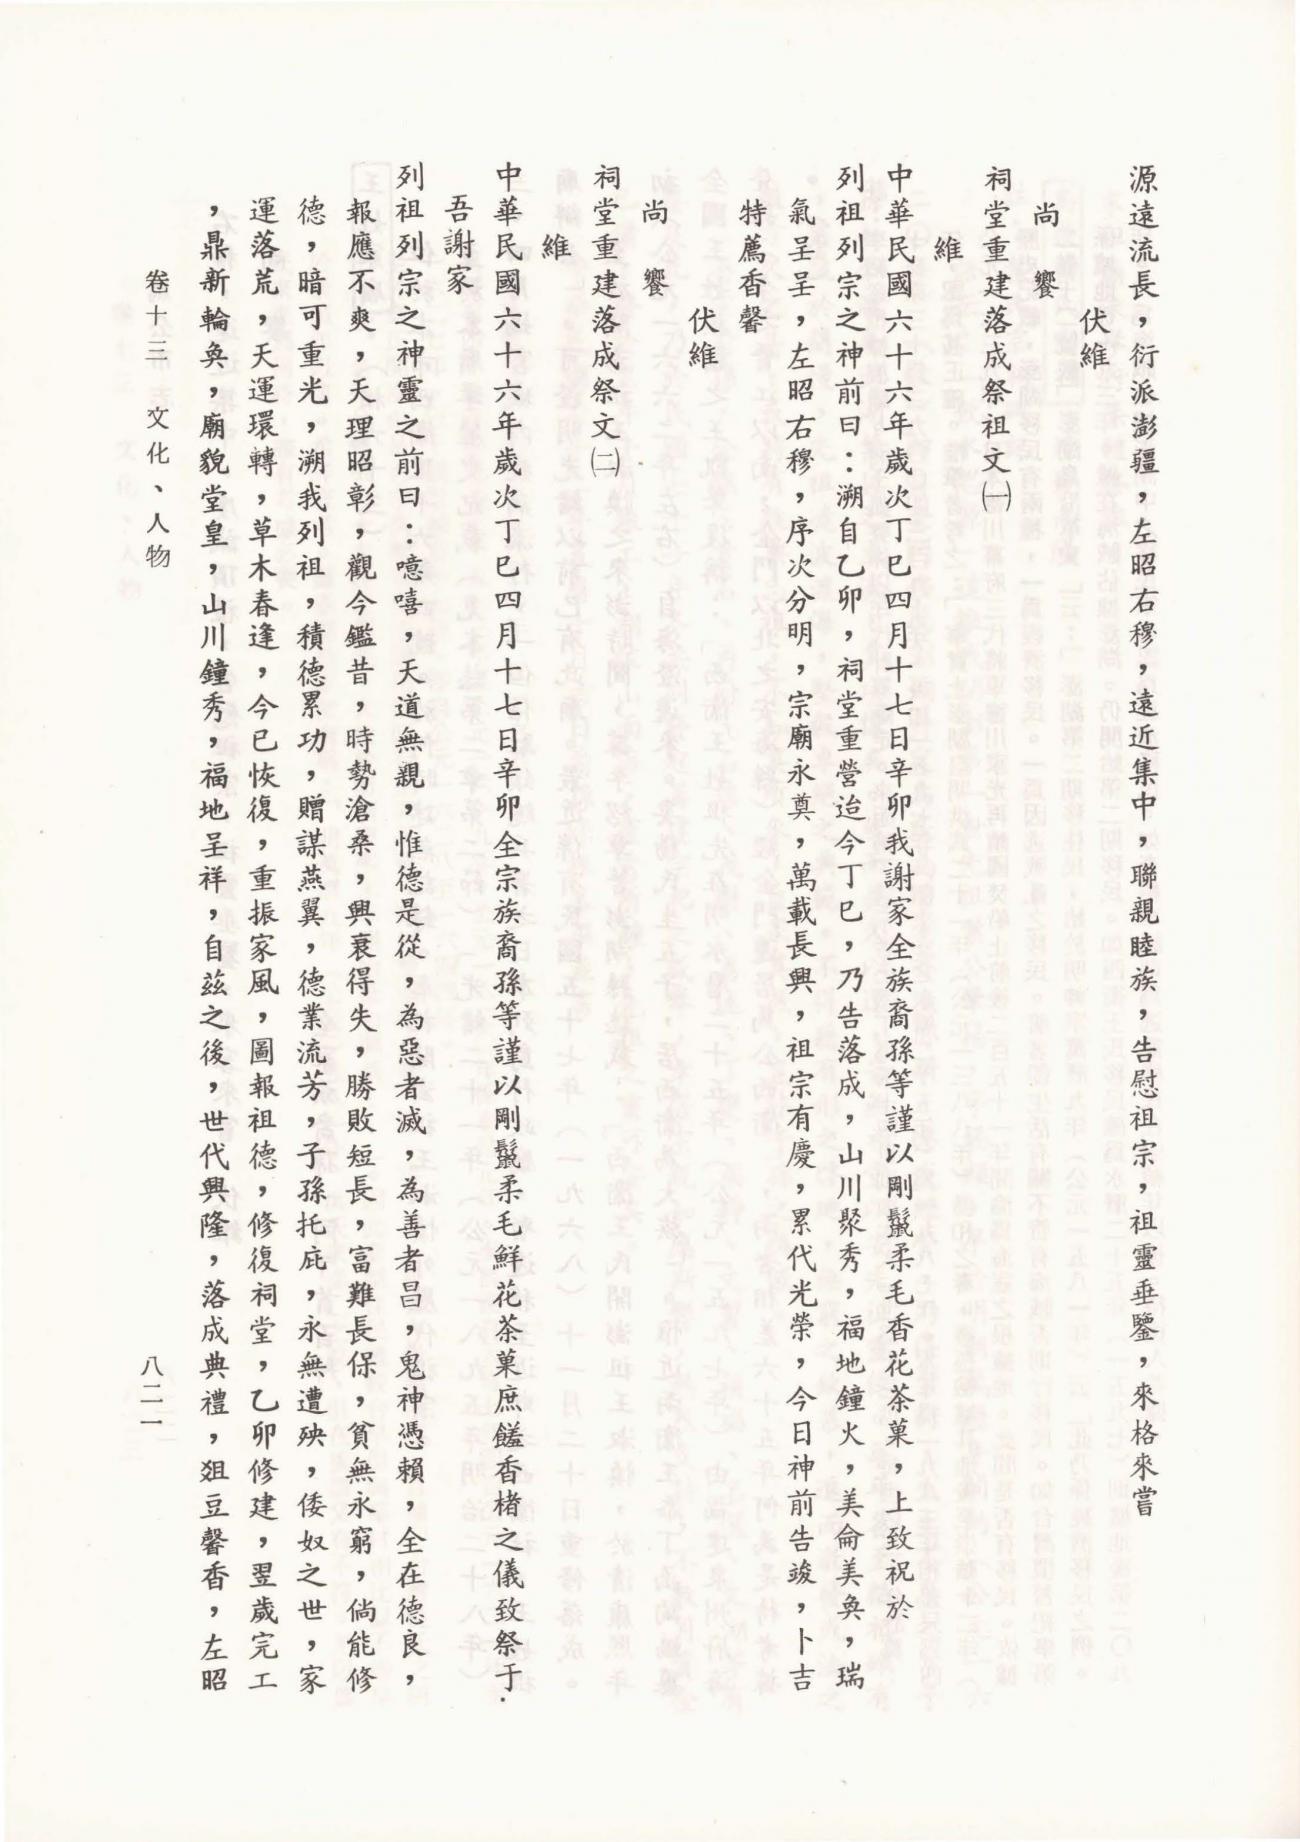 源遠流長，衍派澎疆，左昭右穆，遠近集中，聯親睦族，告慰祖宗，祖靈垂鑒，來格來嘗
伏維
尚饗
祠堂重建落成祭祖文㈠
維
中華民國六十六年歲次丁巳四月十七日辛卯我謝家全族裔孫等謹以剛鬣柔毛香花茶菓，上致祝於
列祖列宗之神前曰：溯自乙卯，祠堂重營迨今丁巳，乃告落成，山川聚秀，福地鐘火，美侖美奐，瑞
氣呈呈，左昭右穆，序次分明，宗廟永奠，萬載長興，祖宗有慶，累代光榮，今日神前告竣，卜吉
特薦香馨
伏維
尚饗
祠堂重建落成祭祖文㈡
維
中華民國六十六年歲次丁巳四月十七日辛卯全宗族裔孫等謹以剛鬣柔毛鮮花茶菓庶饈香楮之儀致祭于
吾謝家
列祖列宗之神靈之前曰：噫嘻，天道無親，惟德是從，為惡者滅，為善者昌，鬼神憑賴，全在德良，
報應不爽，天理昭彰，觀今鑑昔，時勢滄桑，興衰得失，勝敗短長，富難長保，貧無永窮，倘能修
德，暗可重光，溯我列祖，積德累功，贈謀燕翼，德業流芳，子孫托庇，永無遭殃，倭奴之世，家
運落荒，天運環轉，草木春逢，今已恢復，重振家風，圖報祖德，修復祠堂，乙卯修建，翌歲完工
，鼎新輪奐，廟貌堂皇，山川鐘秀，福地呈祥，自茲之後，世代興隆，落成典禮，俎豆馨香，左昭
卷十三　文化、人物
八二一